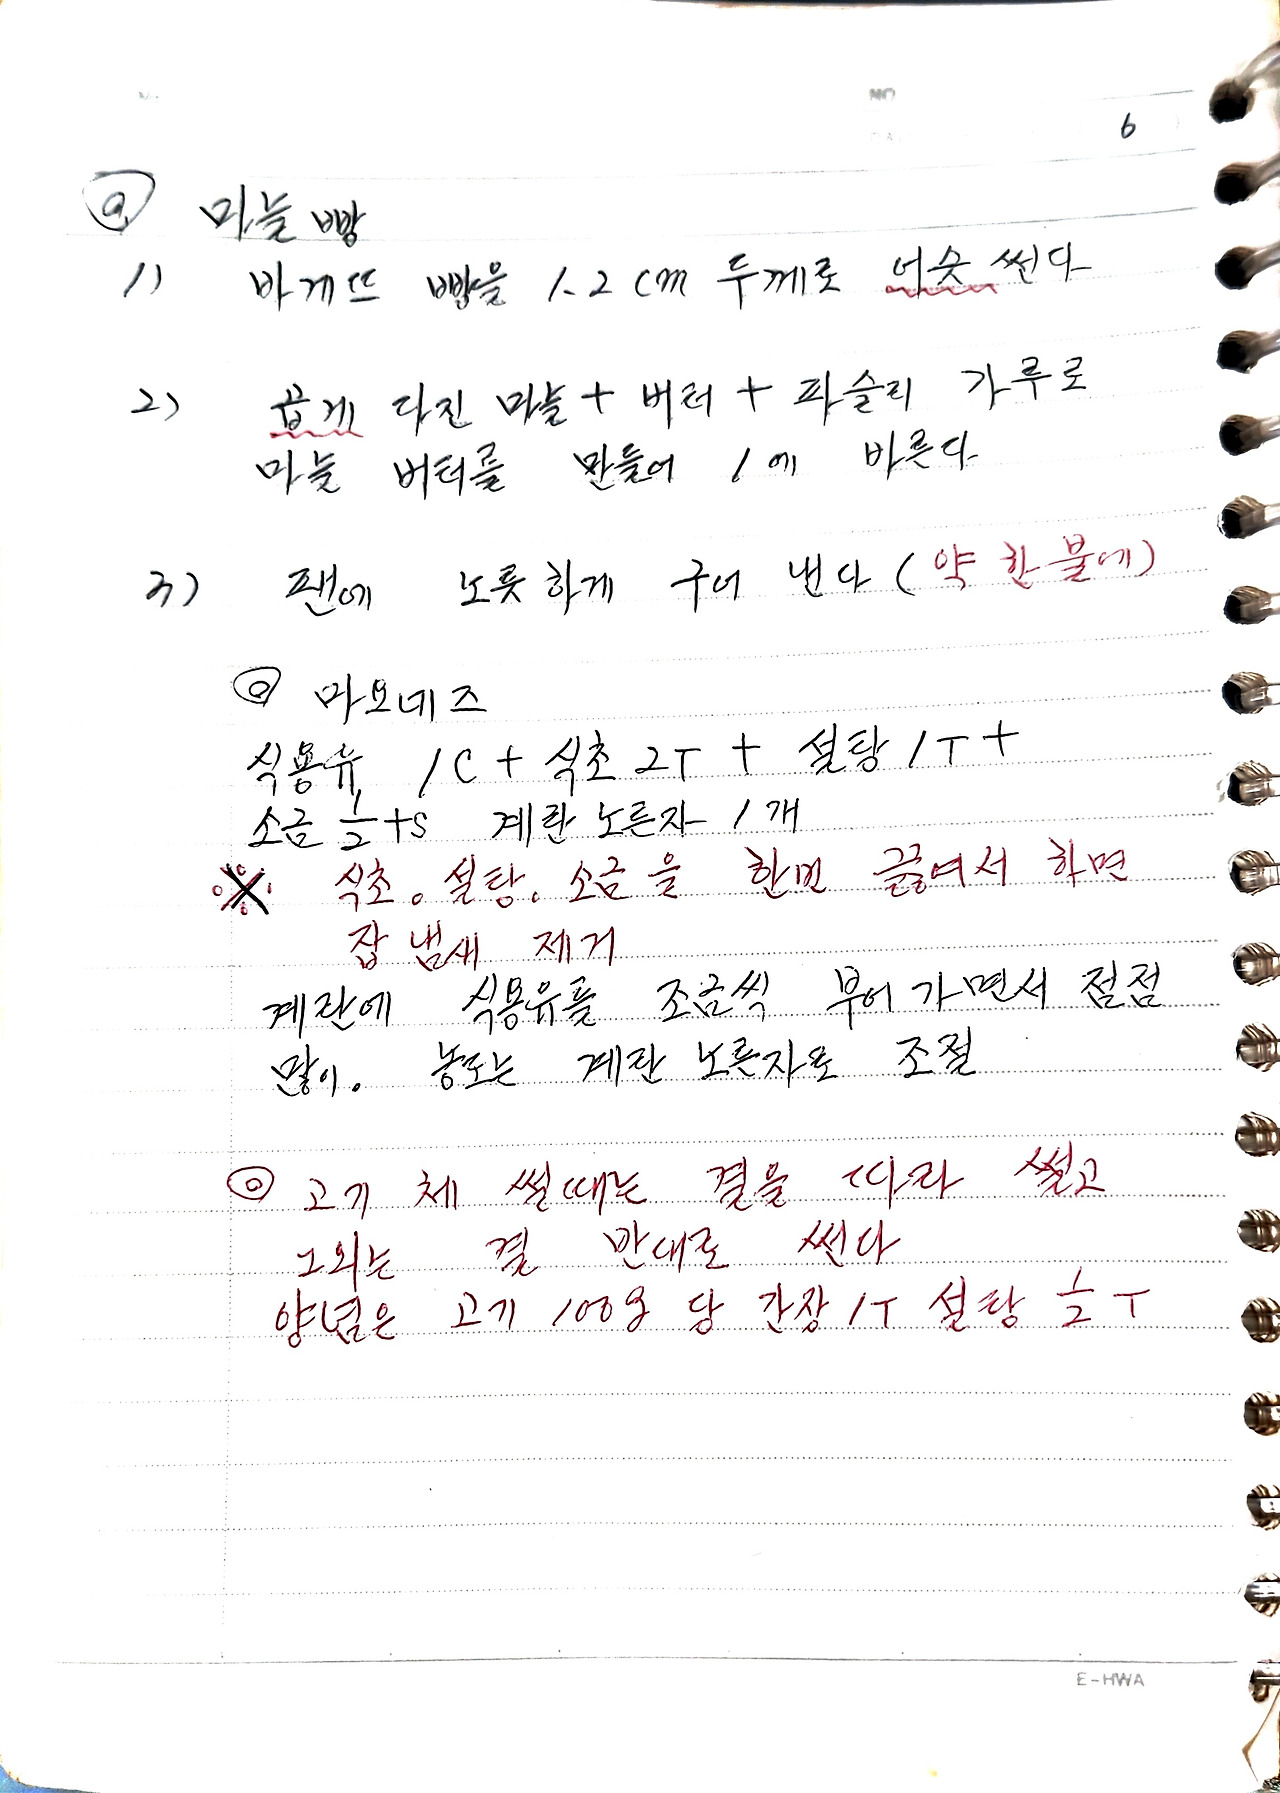 NO
6
◎ 마늘빵
1) 바게뜨 빵을 1.2cm 두께로 어슷 썬다
2) 곱게 다진 마늘 + 버터 + 파슬리 가루로
마늘 버터를 만들어 1에 바른다
3) 팬에 노릇하게 구어 낸다 (약한 불에)
◎ 마요네즈
식용유 1C + 식초 2T + 설탕 1T +
소금 1/2 ts 계란 노른자 1개
※ 식초。설탕。소금을 한번 끓여서 하면
잡냄새 제거
계란에 식용유를 조금씩 부어가면서 점점
많이。 농도는 계란 노른자로 조절
◎ 고기 체 썰때는 결을 따라 썰고
그외는 결 반대로 썬다
양념은 고기 100g 당 간장 1T 설탕 1/2 T
E-HWA